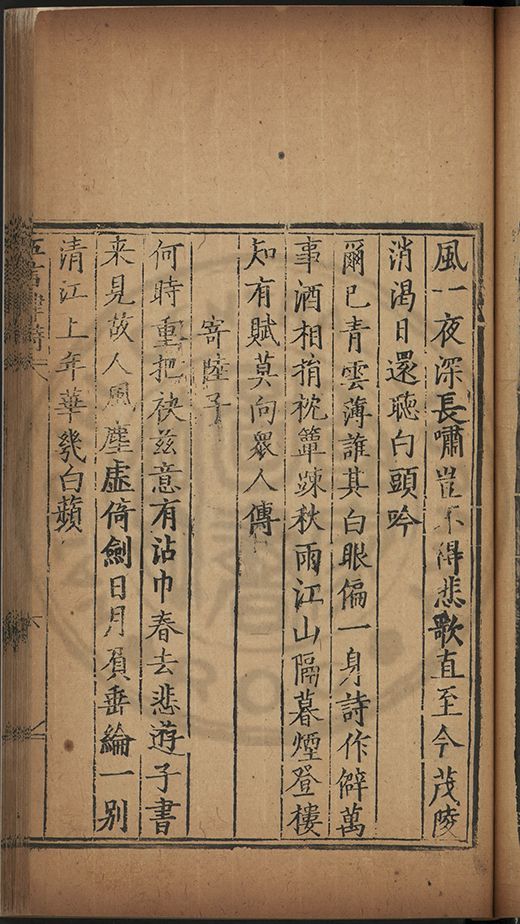 風一夜深長嘯豈不得悲歌直至今茂陵
消渴日還聽白頭吟
爾已青雲薄誰其白眼偏一身詩作僻萬
事酒相捐枕簟踈秋雨江山隔暮煙登樓
知有賦莫向眾人傳
寄陸子
何時重把袂兹意有沾巾春去悲遊子書
来見故人風塵虛倚劍日月負垂綸一別
清江上年華幾白蘋
五言律詩
六